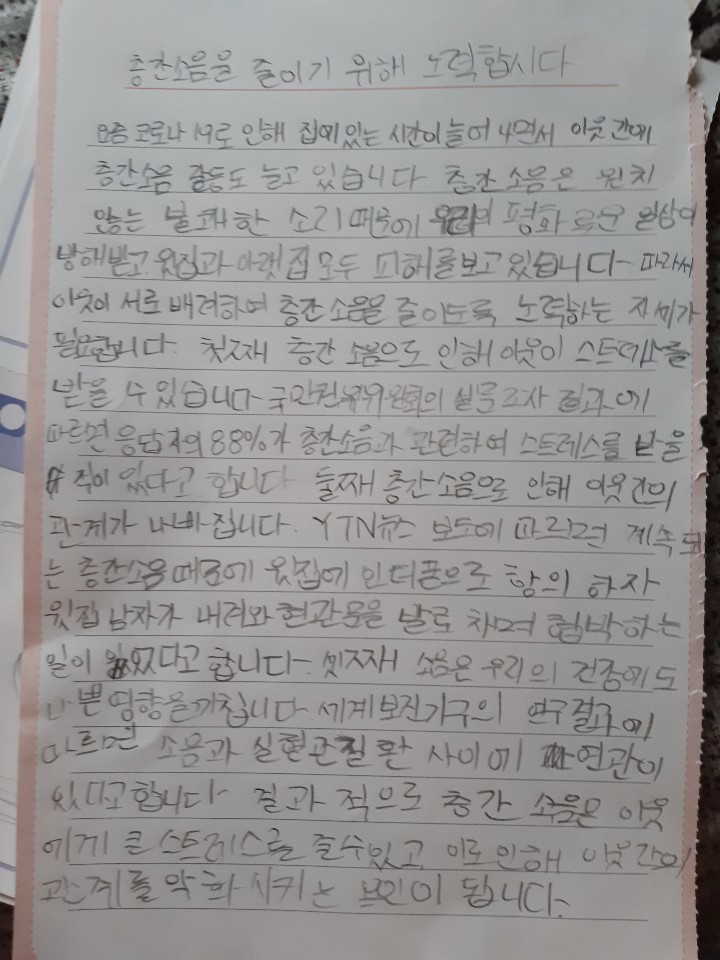 층간소음을 줄이기 위해 노력합시다
요증 코로나 19로 인해 집에 있는 시간이 늘어 나면서 이웃 간에
층간소음 갈등도 늘고 있습니다 층간 소음은 원치
않는 불쾌한 소리 때문에 우리의 평화로운 일상이
방해받고 윗집과 아랫집 모두 피해를 보고 있습니다- 따라서
이웃이 서로 배려하여 층간 소음을 줄이도록 노력하는 자세가
필요합니다. 첫째 층간 소음으로 인해 이웃이 스트레스를
받을 수 있습니다- 국민권위위원회의 설문조사 결과에
따르면 응답자의 88%가 층간소음과 관련하여 스트레스를 받을
적이 있다고 합니다 둘째 층간소음으로 인해 이웃 간의
관계가 나빠집니다. YTN뉴스 보도에 따르면 계속되
는 층간소음 때문에 윗집에 인터폰으로 항의 하자
윗집 남자가 내려와 현관문을 발로 차며 협박하는
일이 있었다고 합니다- 셋째 소음은 우리의 건강에도
나쁜 영향을 끼칩니다 세계보건기구의 연구결과에
따르면 소음과 심혈관질환 사이에 연관이
있다고 합니다- 결과 적으로 층간 소음은 이웃
에게 큰 스트레스를 줄 수 있고 이로 인해 이웃 간의
관계를 악화 시키는 원인이 됩니다-